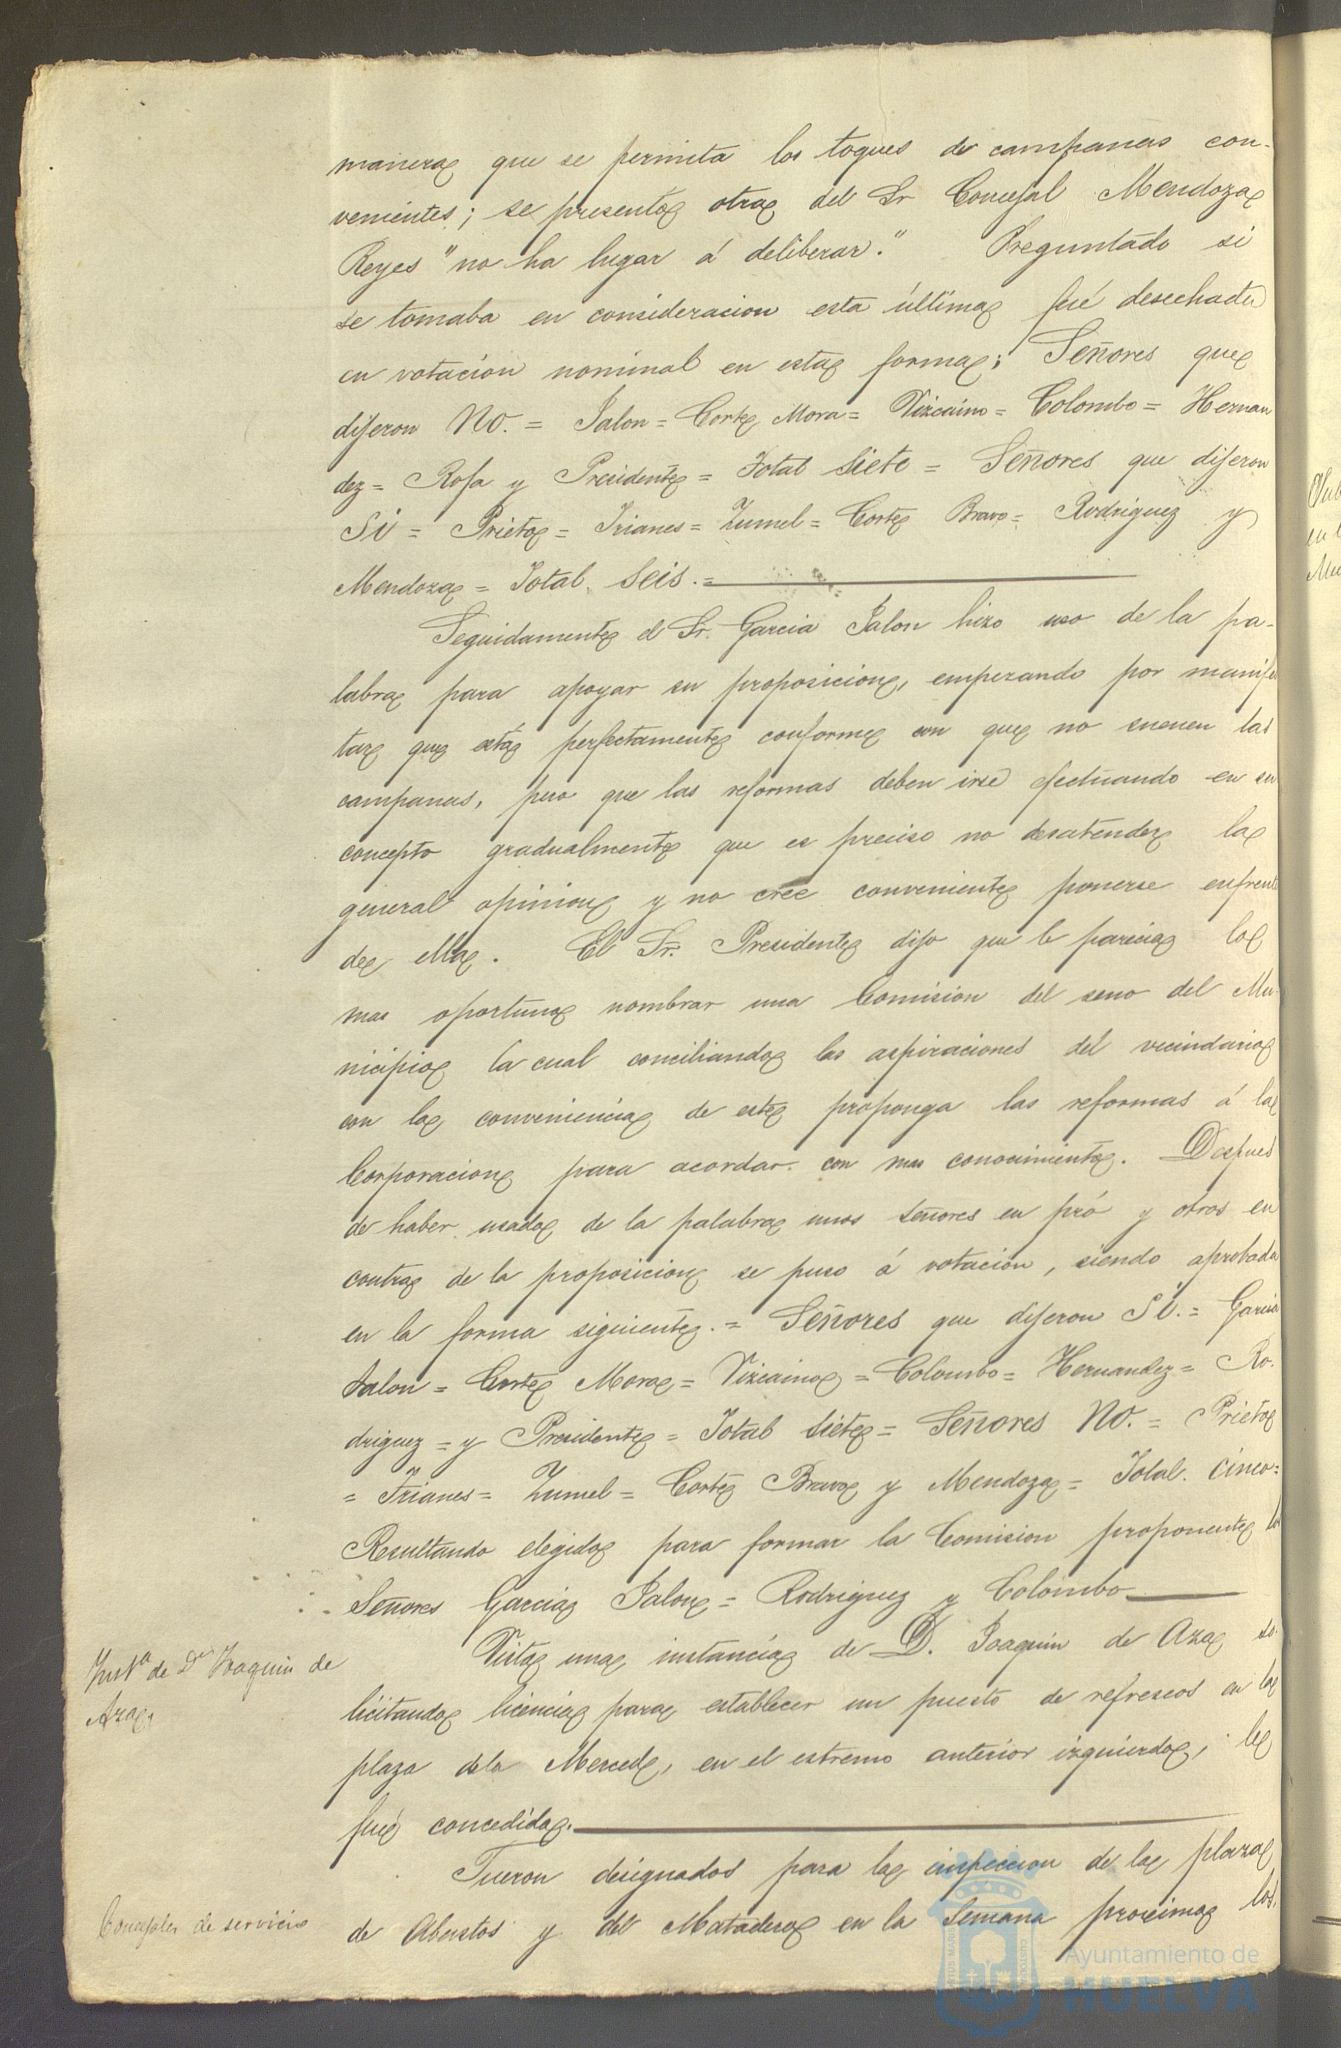 manera que se permita los toques de campanas con-
venientes; se presenta otra del Sr Concejal Mendoza
Reyes "no ha lugar á deliberar." Preguntado si
se tomaba en consideracion esta última fué desechada
en votación nominal en esta forma; Señores que
dijeron No. = Jalon = Corte Mora = Vizcaino = Colombo = Hernan
dez = Rofa y Presidente = Total Siete = Señores que dijeron
Sí = Prieto = Trianes = Zumel = Corte Bravo = Rodriguez y
Mendoza = Total. Seis. =
Seguidamente el Sr. Garcia Jalon hizo uso de la pa-
labra para apoyar su proposicion, empezando por manifes
tar que está perfectamente conforme con que no suenen las
campanas, pero que las reformas deben irse efectuando en su
concepto gradualmente que es preciso no desatender la
general opinion y no cree conveniente ponerse enfrente
de ella. El Sr. Presidente dijo que le parecia lo
mas oportuno nombrar una Comision del seno del Mu-
nicipio la cual conciliando las aspiraciones del vecindario
con la conveniencia de este proponga las reformas á la
Corporacion para acordar con mas conocimiento. Despues
de haber usado de la palabra unos señores en pró y otros en
contra de la proposicion se puso á votación, siendo aprobada
en la forma siguiente. = Señores que dijeron Sí. = Garcia
Jalon = Corte Mora = Vizcaino = Colombo = Hernandez = Ro-
driguez = y Presidente = Total Siete = Señores No. = Prieto
= Trianes = Zumel = Corte Bravo y Mendoza = Total. Cinco =
Resultando elegido para formar la Comision proponente los
Señores Garcia Jalon = Rodriguez y Colombo
Inst.ª de Dn Joaquin de
Aza.
Vista una instancia de D. Joaquin de Aza so-
licitando licencia para establecer un puesto de refrescos en la
plaza dela Merced, en el estremo anterior izquierdo, le
fué concedida.
Concejales de servicio
Fueron designados para la inspeccion de la plaza
de Abastos y del Matadero en la Semana proxima los
Ayuntamiento de
HUELVA